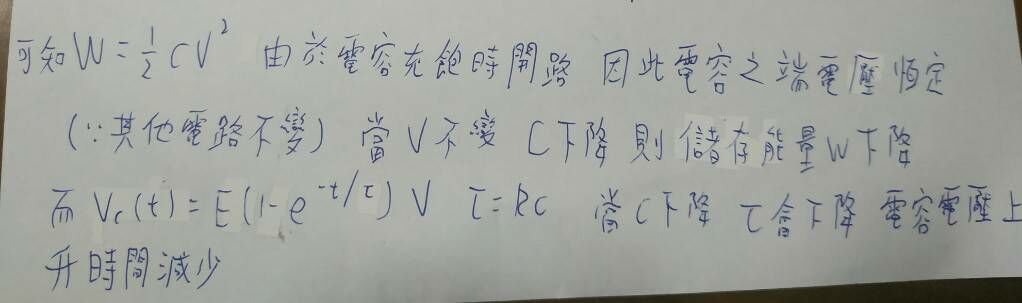 可知 W = 1/2 CV² 由於電容充飽時開路 因此電容之端電壓恆定
(∵其他電路不變) 當 V 不變 C下降 則 儲存能量W下降
而 Vc(t) = E(1-e^-t/τ) V τ=RC 當C下降 τ會下降 電容電壓上
升時間減少